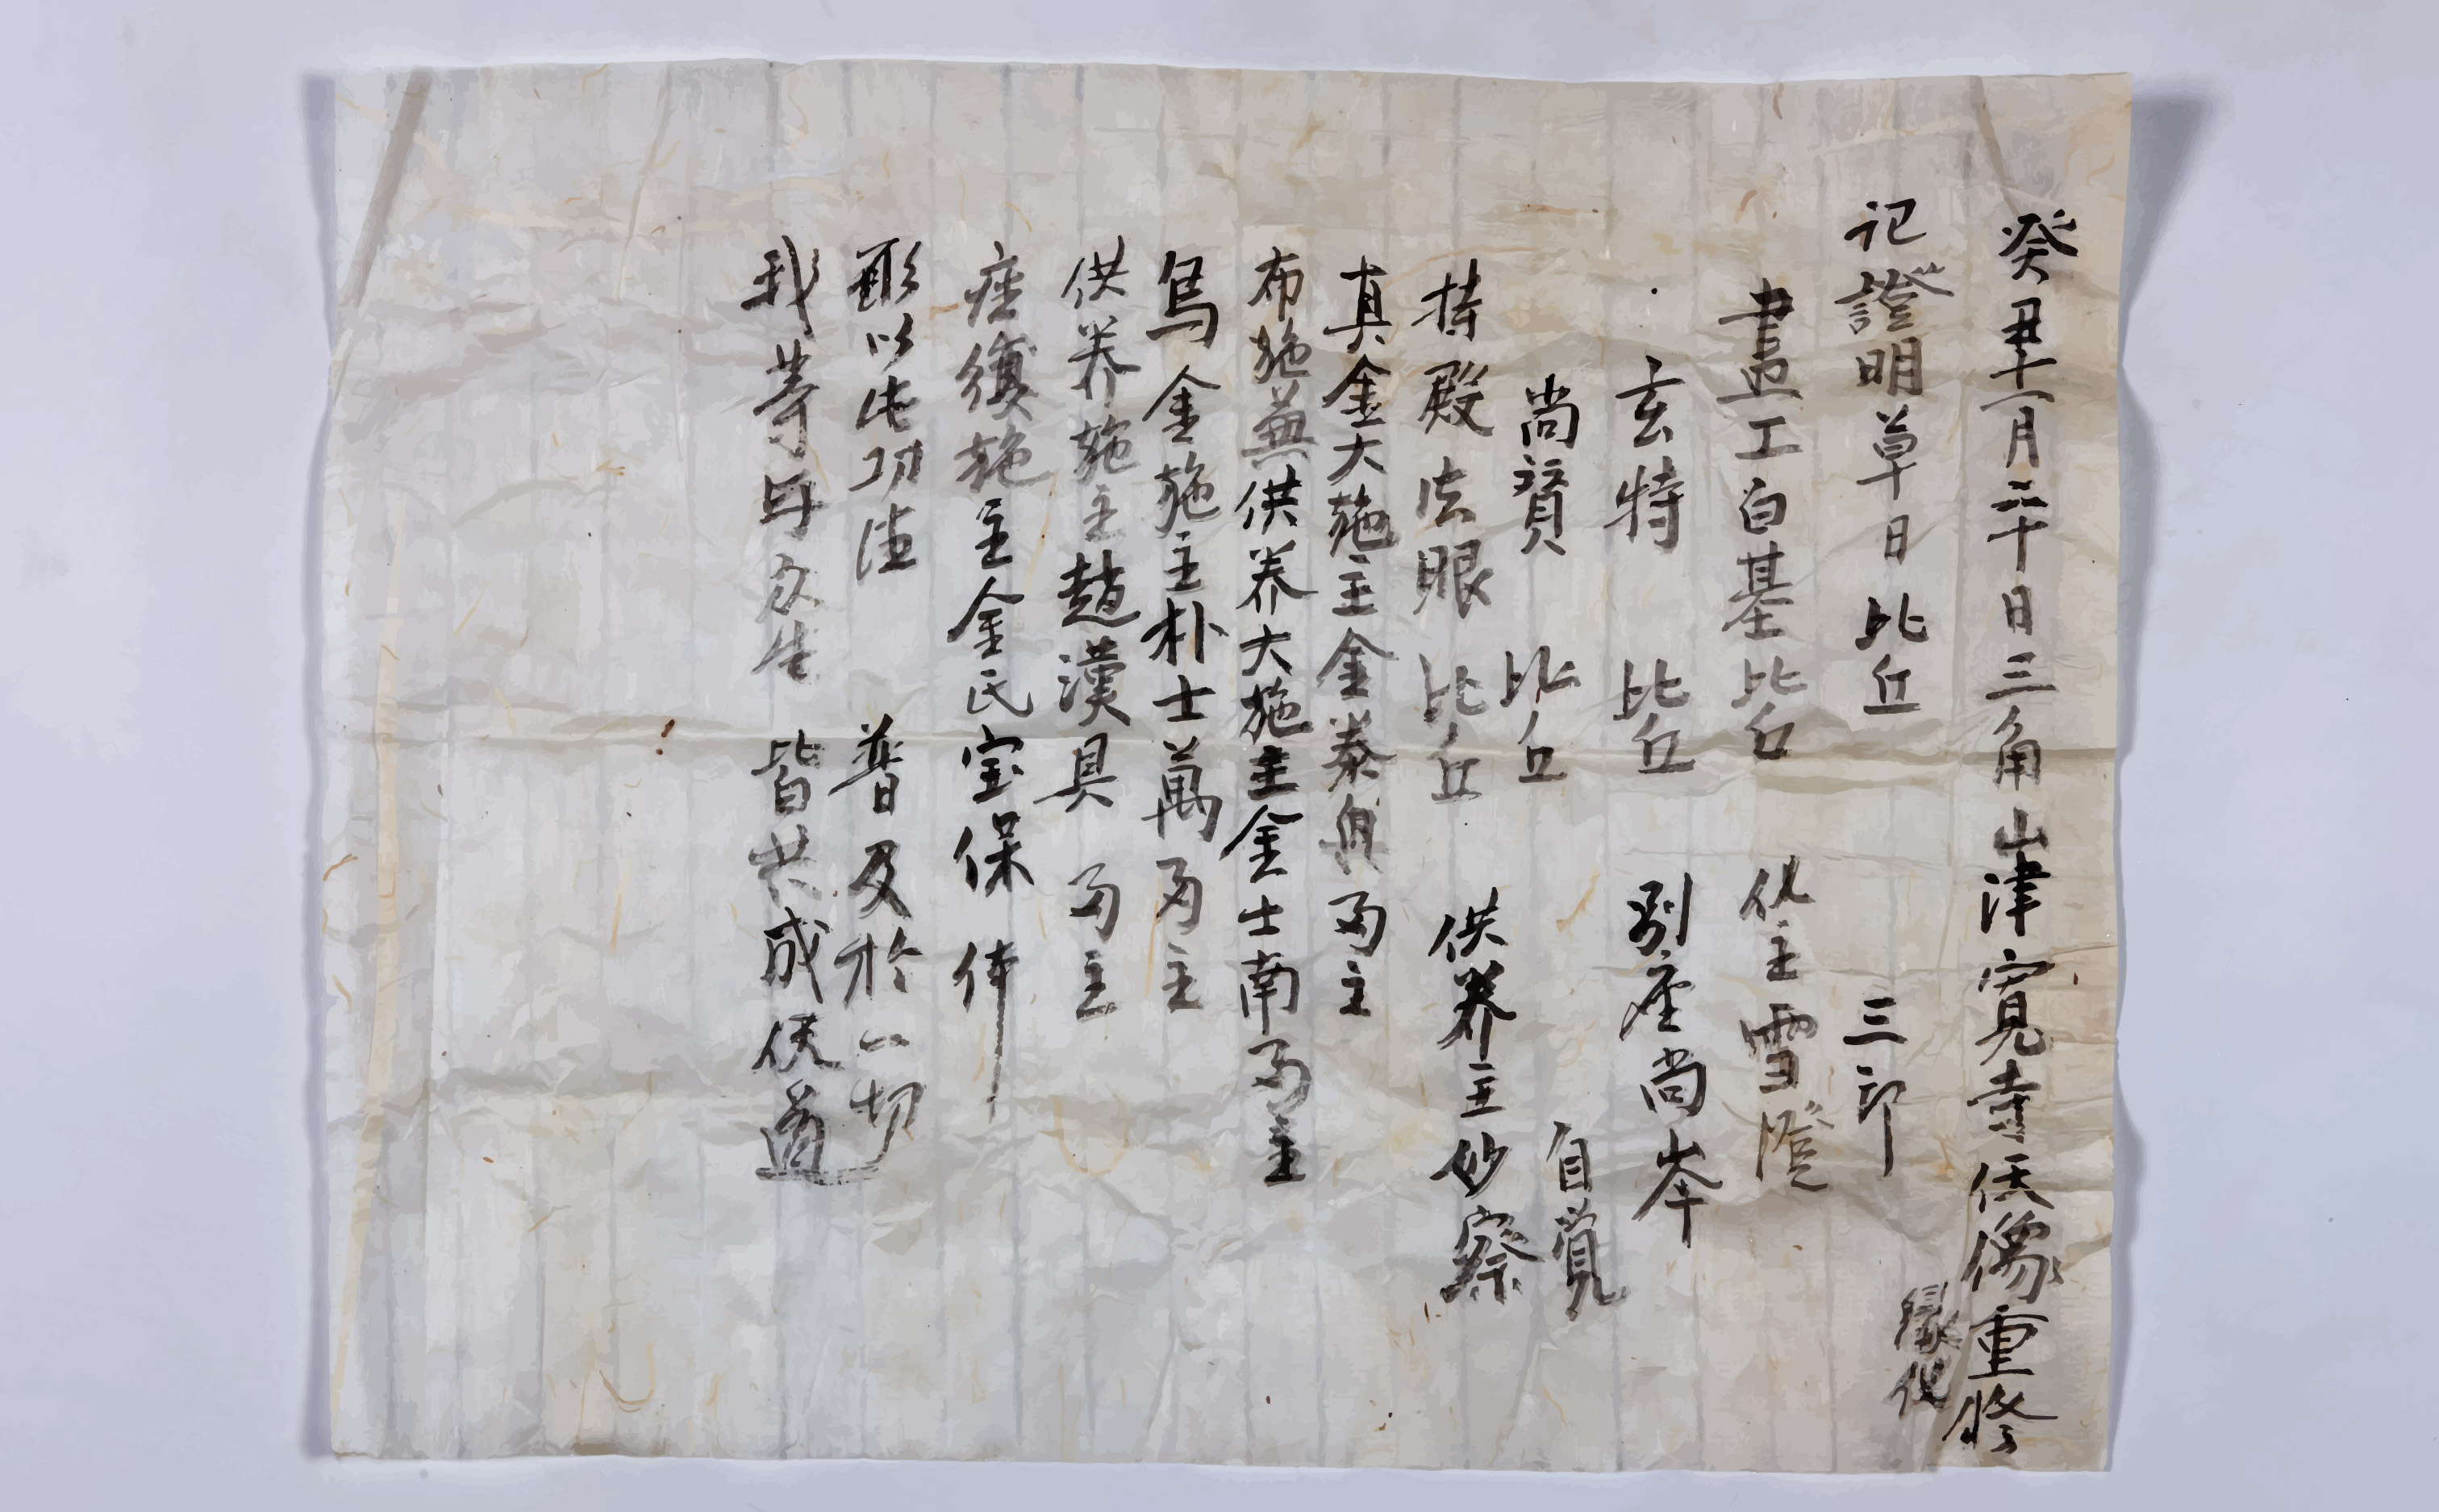 癸丑十一月二十日三角山津寬寺佛像重修
緣化
記證明草日 比丘 三印
畫工白基比丘 化主雪澄
玄特 比丘 別座尚岑
尚贊 比丘 自覺
持殿法眼 比丘 供养主妙察
真金大施主金泰興 両主
布施兼供养大施主金士南両主
烏金施主朴士萬両主
供养施主趙漢具 両主
座復施主金氏宝保体
願以此功德 普及於一切
我等与众生 皆共成佛道